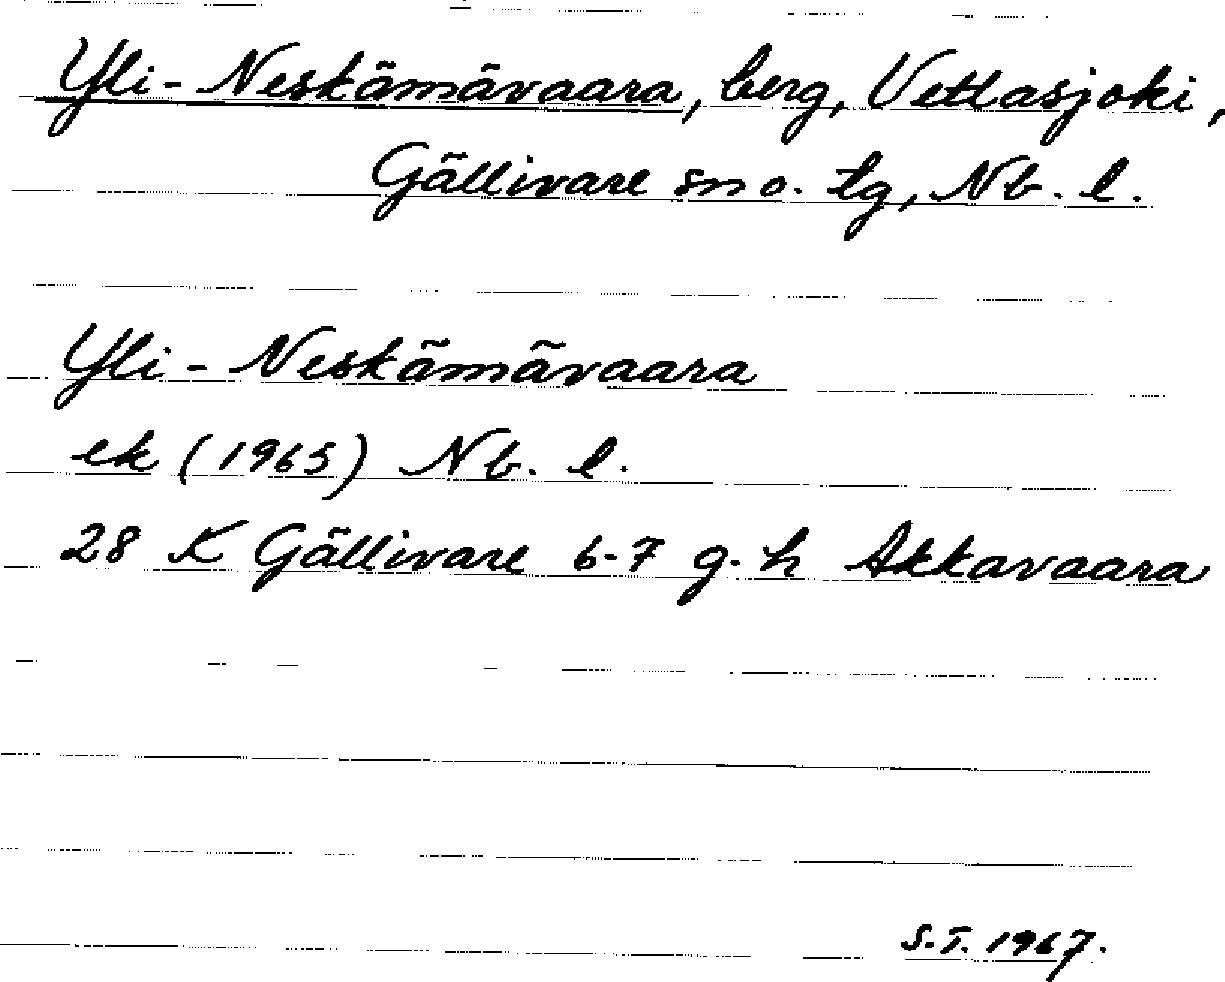 Yli-Neskämävaara, berg, Vettasjoki,
Gällivare sn o. tg, Nb. l.
Yli-Neskämävaara
ek (1965) Nb. l.
28 K Gällivare 6-7 g-h Akkavaara
S.T. 1967.